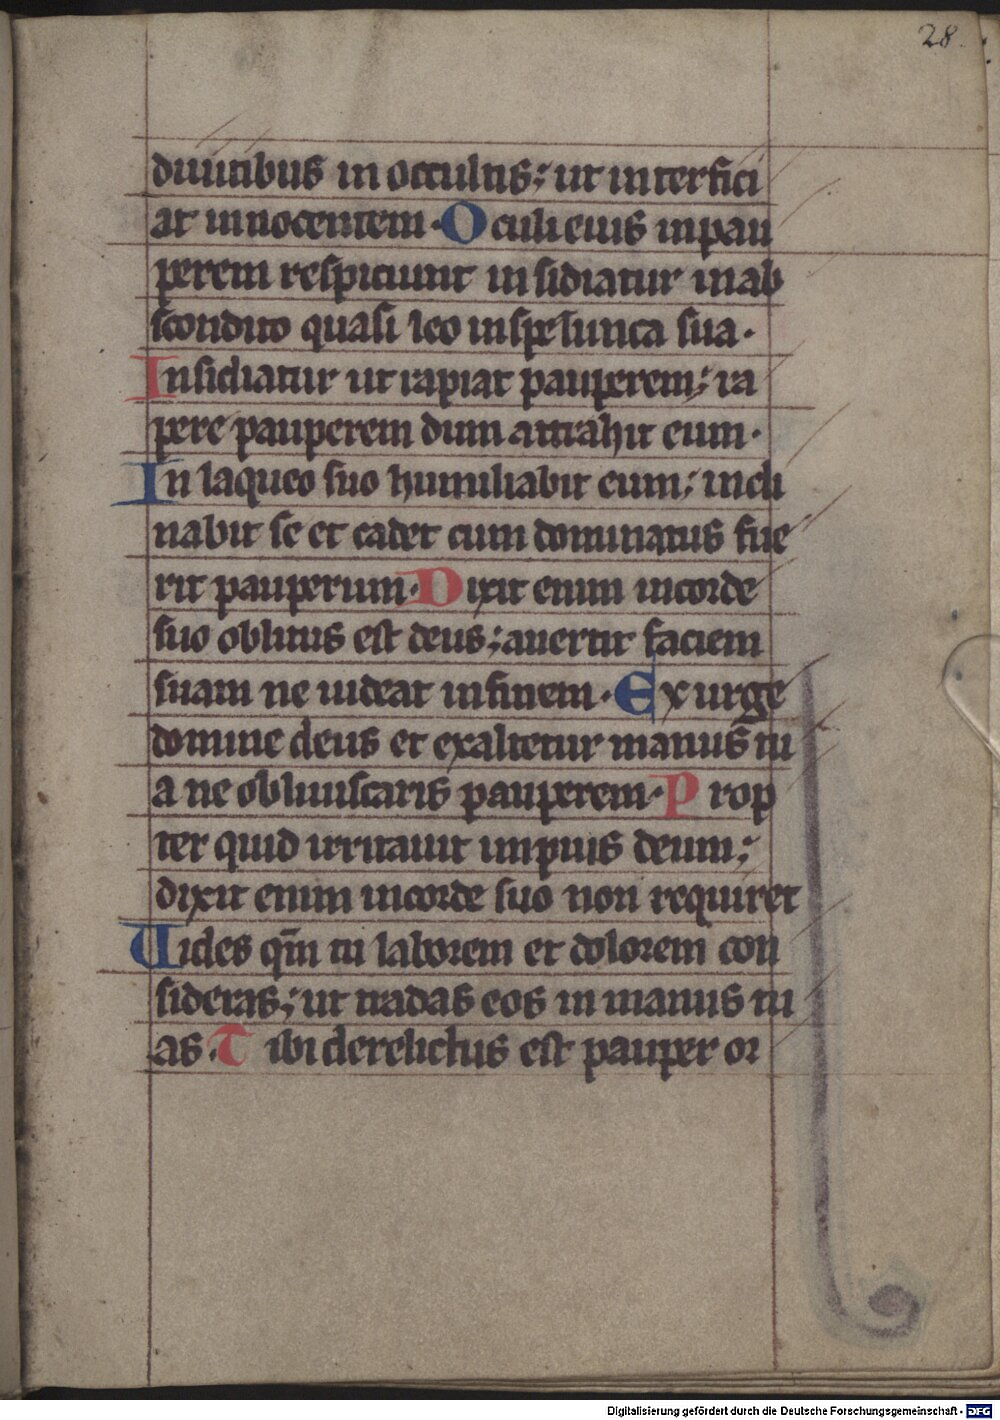 28.
diuitibus in occultis; ut interfici
at innocentem. Oculi eius in pau
perem respiciunt insidiatur in ab
scondito quasi leo in spelunca sua.
Insidiatur ut rapiat pauperem; ra
pere pauperem dum attrahit eum.
In laqueo suo humiliabit eum; incli
nabit se et cadet cum dominatus fue
rit pauperum. Dixit enim in corde
suo oblitus est deus; auertit faciem
suam ne uideat in finem. Exurge
domine deus et exaltetur manus tu
a ne obliuiscaris pauperem. Prop
ter quid irritauit impius deum;
dixit enim in corde suo non requiret
Uides qm̄ tu laborem et dolorem con
sideras; ut tradas eos in manus tu
as. Tibi derelictus est pauper or
Digitalisierung gefördert durch die Deutsche Forschungsgemeinschaft - DFG